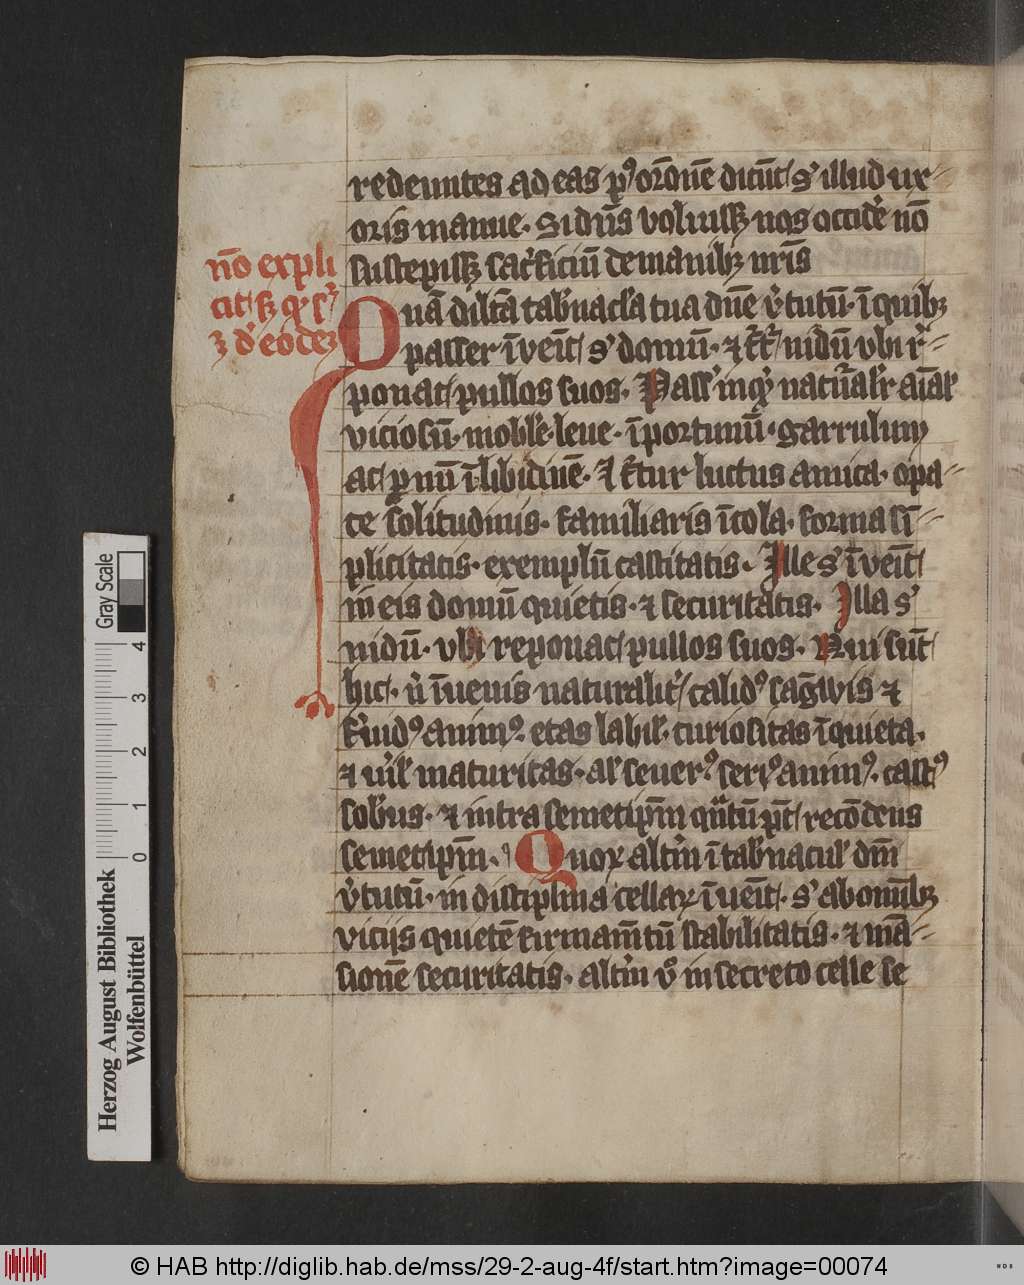 redeuntes ad eas p⁹ or̄onē dicūt s' illud ux-
oris manue. Si dūs voluissꝫ nos occid'e nō
suscepissꝫ sac'ficiū de manibꝫ nr̄is
nō expli
cit sꝫ
ꝫ d' eodeꝫ
Quā dilc̄a tab'nacl'a tua dn̄e v'tutū. ī quibꝫ
passer īveīt s' domū. ⁊ nidū vbi r'-
ponat pullos suos. Pass' inqͥ natural'r aīal
viciosū. mobl'e. leue. īportunū. garrulum
ac pnū ī libidinē. Et t'tur luctus amica. opa-
ce solitudinis. familiaris īcola. forma sī-
plicitatis. exemplū castitatis. Ille s' īveīt
in eis domū quietis. ⁊ securitatis. Illa s'
nidū. vbi reponat pullos suos. Qui sūt
hii. n' iuuenis naturalit' calid⁹ sāgwis ⁊
f'uid⁹ anim⁹. etas labil'. curiositas īquieta.
⁊ v'il' maturitas. al' seuer⁹ seri⁹ anim⁹. cast⁹
sob'us. ⁊ intra semetip̄m qͣtū pt̄ recōdens
semetip̄m. Quoꝝ alt'm ī tab'nacul' dn̄i
v'tutū. in disciplina cellaꝝ īveīt. s' ab omībꝫ
viciis quietē firmam̄tū stabilitatis. ⁊ mā-
sionē securitatis. alt'm v° in secreto celle se
Gray Scale
4
3
2
1
0
Herzog August Bibliothek
Wolfenbüttel
© HAB http://diglib.hab.de/mss/29-2-aug-4f/start.htm?image=00074